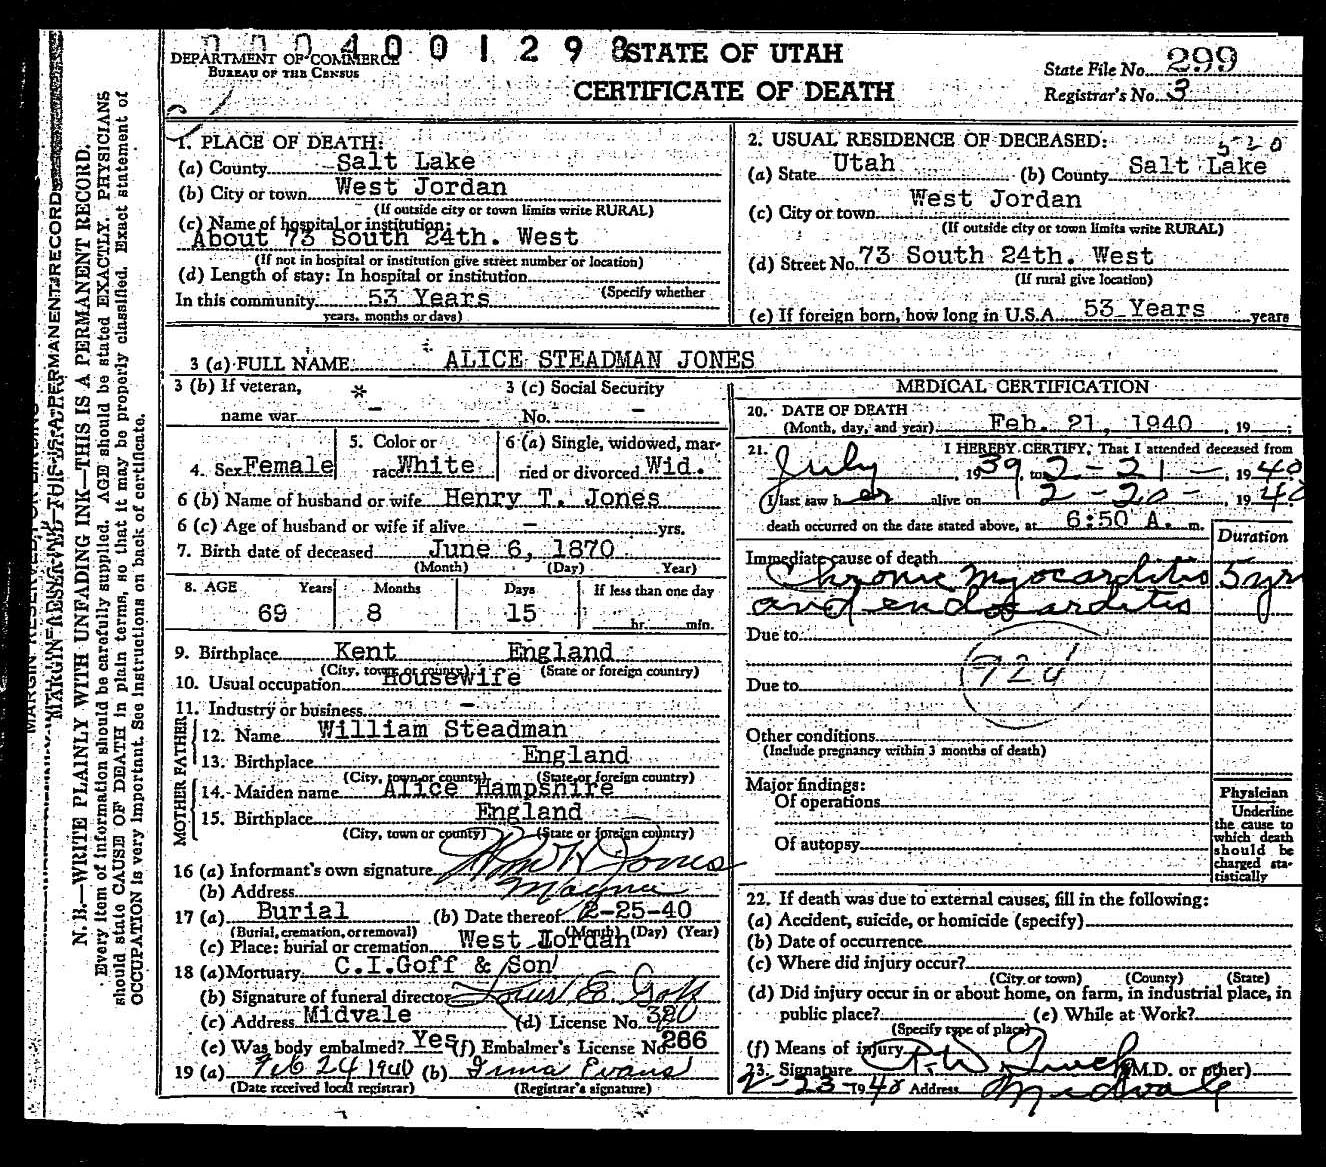 0004001298
STATE OF UTAH
CERTIFICATE OF DEATH
DEPARTMENT OF COMMERCE
BUREAU OF THE CENSUS
State File No. 299
Registrar's No. 3
1. PLACE OF DEATH:
(a) County Salt Lake
(b) City or town West Jordan
(If outside city or town limits write RURAL)
(c) Name of hospital or institution:
About 73 South 24th. West
(If not in hospital or institution give street number or location)
(d) Length of stay: In hospital or institution
(Specify whether
In this community 53 Years
years, months or days)
2. USUAL RESIDENCE OF DECEASED:
520
(a) State Utah (b) County Salt Lake
(c) City or town West Jordan
(If outside city or town limits write RURAL)
(d) Street No. 73 South 24th. West
(If rural give location)
(e) If foreign born, how long in U.S.A. 53 Years years
3 (a) FULL NAME ALICE STEADMAN JONES
3 (b) If veteran, * 3 (c) Social Security
name war - No. -
4. Sex Female 5. Color or race White 6 (a) Single, widowed, married or divorced Wid.
6 (b) Name of husband or wife Henry T. Jones
6 (c) Age of husband or wife if alive - yrs.
7. Birth date of deceased June 6, 1870
(Month) (Day) Year)
8. AGE Years Months Days If less than one day
69 8 15 hr. min.
9. Birthplace Kent England
(City, town or county) (State or foreign country)
10. Usual occupation Housewife
11. Industry or business -
FATHER
12. Name William Steadman
13. Birthplace England
(City, town or county) (State or foreign country)
MOTHER
14. Maiden name Alice Hampshire
15. Birthplace England
(City, town or county) (State or foreign country)
16 (a) Informant's own signature Wm H Jones
(b) Address Magna
17 (a) Burial (b) Date thereof 2-25-40
(Burial, cremation, or removal) (Month) (Day) (Year)
(c) Place: burial or cremation West Jordan
18 (a) Mortuary C.I.Goff & Son
(b) Signature of funeral director Louis E Goff
(c) Address Midvale (d) License No. 320
(e) Was body embalmed? Yes (f) Embalmer's License No. 286
19 (a) Feb 24 1940 (b) Irma Evans
(Date received local registrar) (Registrar's signature)
MEDICAL CERTIFICATION
20. DATE OF DEATH
(Month, day, and year) Feb. 21, 1940, 19 ;
21. I HEREBY CERTIFY, That I attended deceased from
July, 1939, to 2-21-, 1940
I last saw her alive on 2-20-, 1940
death occurred on the date stated above, at 6:50 A. m.
Duration
Immediate cause of death
Chronic Myocarditis 5 yrs
and endocarditis
Due to
Due to
Other conditions
(Include pregnancy within 3 months of death)
Major findings:
Of operations
Of autopsy
Physician
Underline
the cause to
which death
should be
charged sta-
tistically
22. If death was due to external causes, fill in the following:
(a) Accident, suicide, or homicide (specify)
(b) Date of occurrence
(c) Where did injury occur?
(City or town) (County) (State)
(d) Did injury occur in or about home, on farm, in industrial place, in
public place? (e) While at Work?
(Specify type of place)
(f) Means of injury
23. Signature (M.D. or other)
2-23-1940 Address Midvale
MARGIN RESERVED FOR BINDING
N. B.—WRITE PLAINLY WITH UNFADING INK—THIS IS A PERMANENT RECORD.
Every item of information should be carefully supplied. AGE should be stated EXACTLY. PHYSICIANS
should state CAUSE OF DEATH in plain terms, so that it may be properly classified. Exact statement of
OCCUPATION is very important. See instructions on back of certificate.